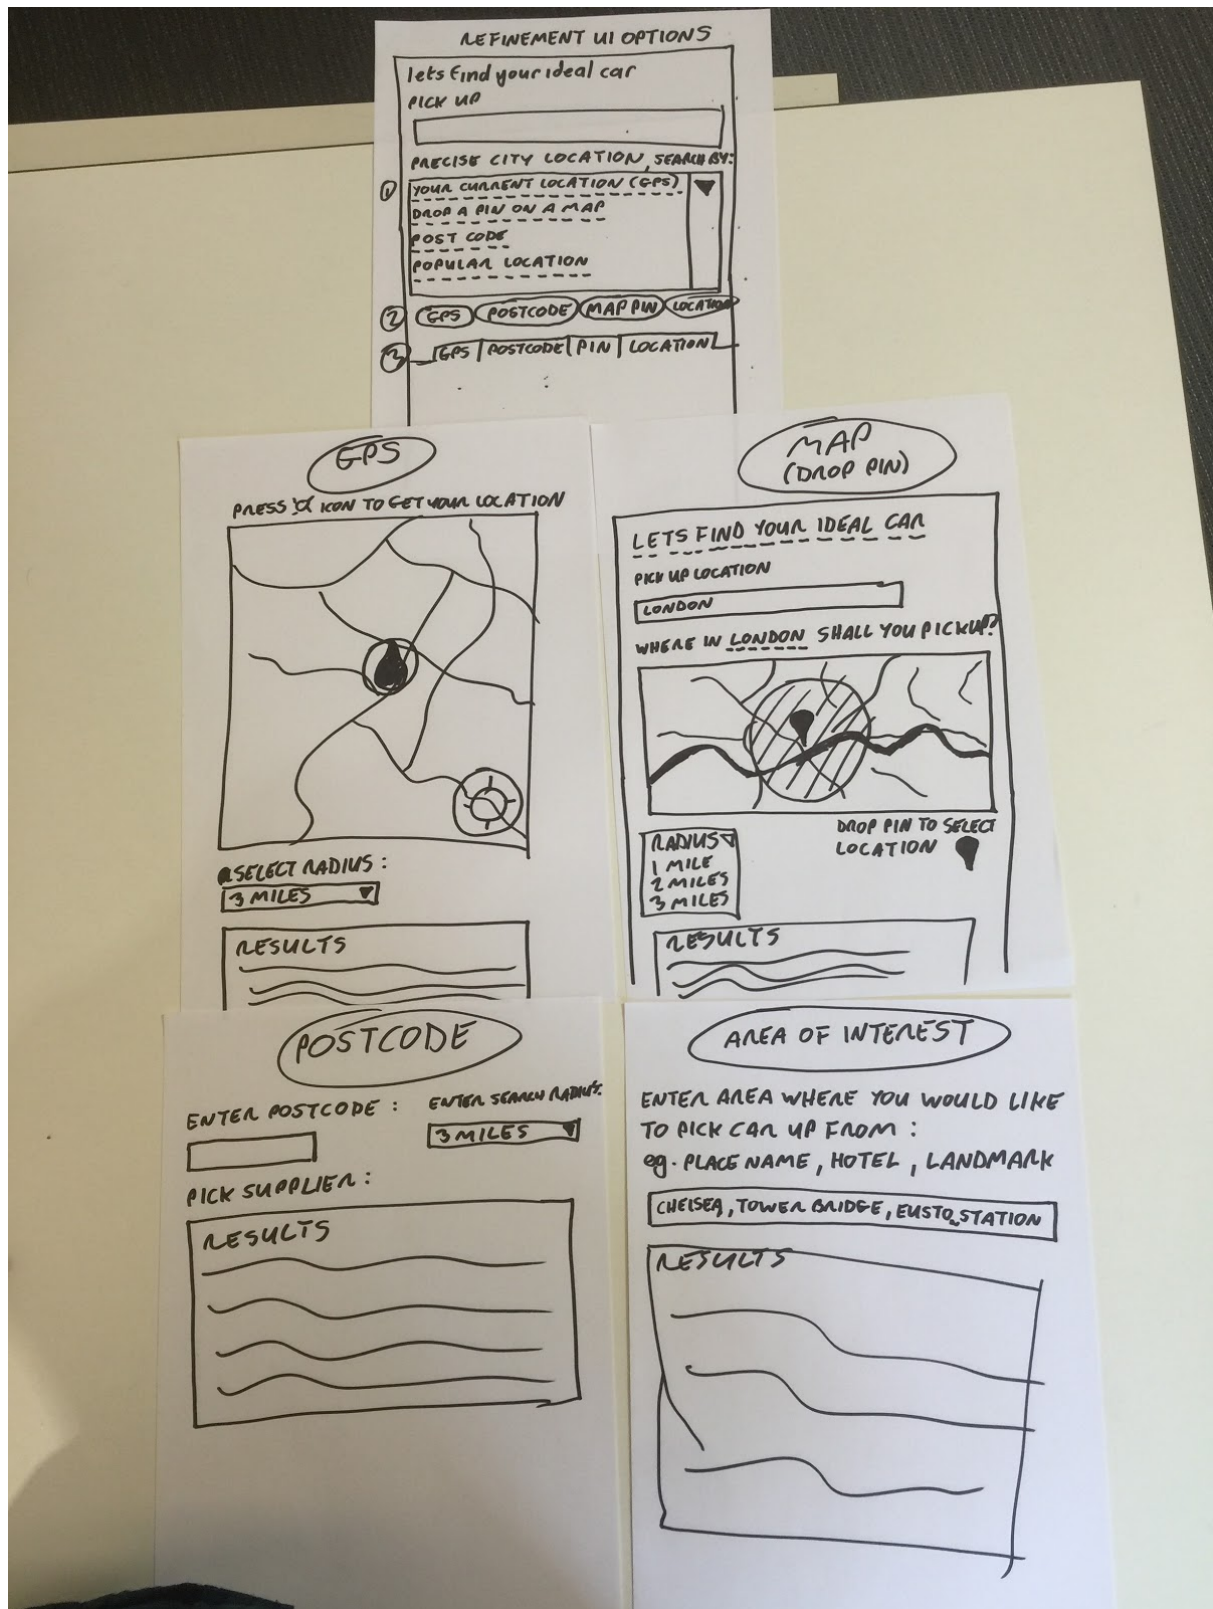 REFINEMENT UI OPTIONS
lets find your ideal car
PICK UP
PRECISE CITY LOCATION, SEARCH BY:
① YOUR CURRENT LOCATION (GPS)
DROP A PIN ON A MAP
POST CODE
POPULAR LOCATION
② GPS POSTCODE MAP PIN LOCATION
③ GPS POSTCODE PIN LOCATION
GPS
PRESS ICON TO GET YOUR LOCATION
SELECT RADIUS:
3 MILES
RESULTS
MAP
(DROP PIN)
LETS FIND YOUR IDEAL CAR
PICK UP LOCATION
LONDON
WHERE IN LONDON SHALL YOU PICKUP?
DROP PIN TO SELECT
LOCATION
RADIUS
1 MILE
2 MILES
3 MILES
RESULTS
POSTCODE
ENTER POSTCODE:
ENTER SEARCH RADIUS:
3 MILES
PICK SUPPLIER:
RESULTS
AREA OF INTEREST
ENTER AREA WHERE YOU WOULD LIKE
TO PICK CAR UP FROM:
eg. PLACE NAME, HOTEL, LANDMARK
CHELSEA, TOWER BRIDGE, EUSTON STATION
RESULTS